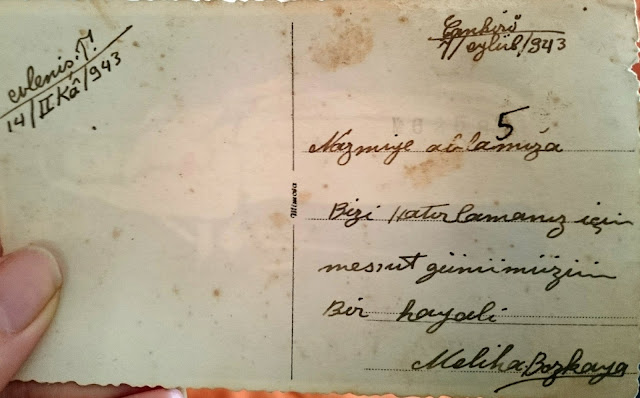 evleniş T!
14/IIKâ/943
Çankırı
7/eylül/943
5
Nazmiye ablamıza
Mimoza
Bizi Hatırlamanız için
mesut günümüzün
Bir hayali
Meliha Bozkaya